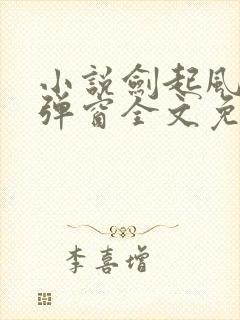 小説劍起風
彈窗全文免
李喜增